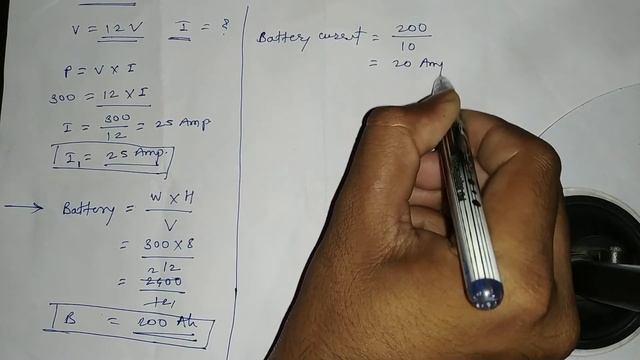 V = 12V I = ?
P = V x I
300 = 12 x I
I = 300/12 = 25 Amp
I₁ = 25 Amp.
→ Battery = W x H / V
= 300 x 8 / 12
= 2400 / 12
B = 200 Ah
Battery current = 200/10
= 20 Amp